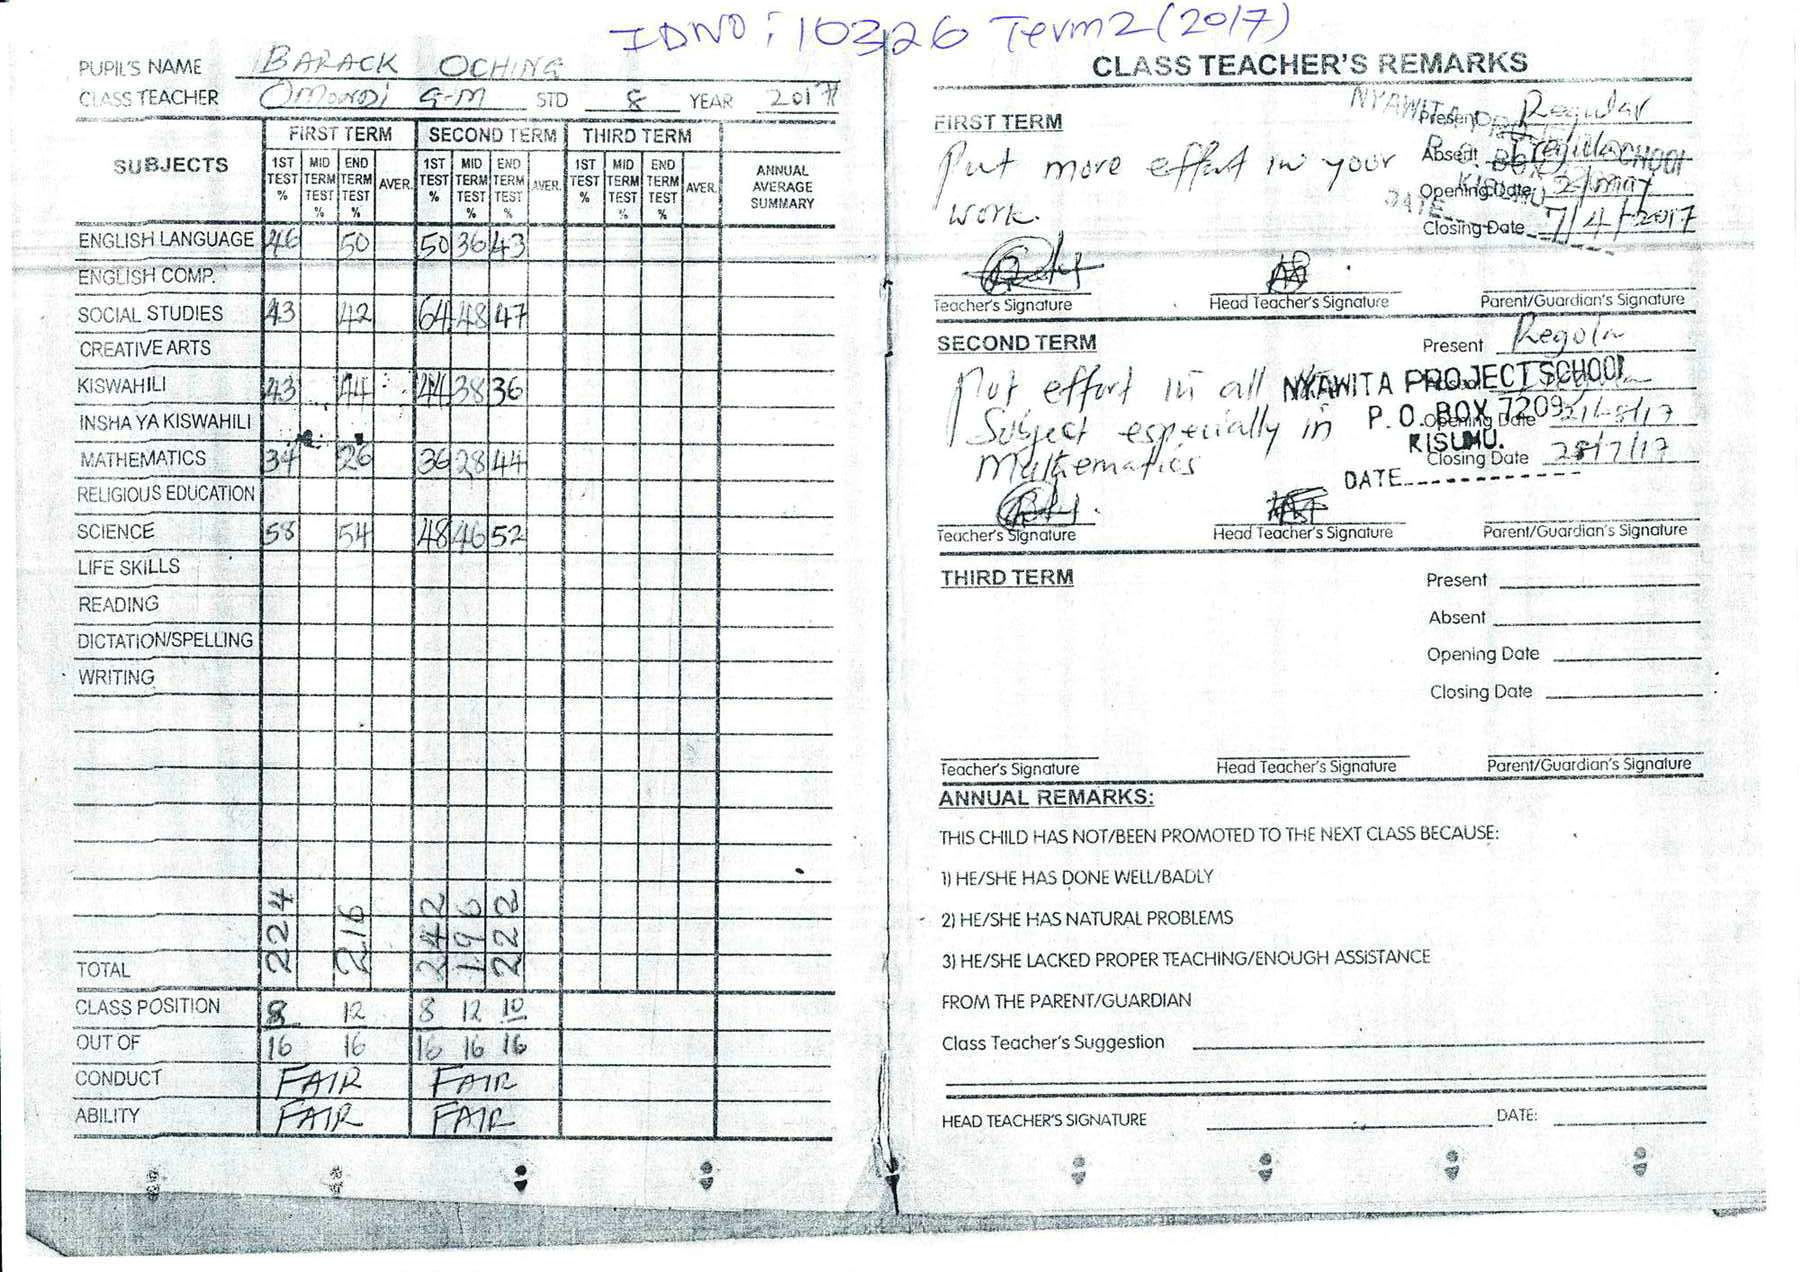 IDNO: 10326 Term 2 (2017)
PUPIL'S NAME BARACK OCHING
CLASS TEACHER Omondi G-M STD 8 YEAR 2017
SUBJECTS FIRST TERM SECOND TERM THIRD TERM ANNUAL AVERAGE SUMMARY
1ST TEST % MID TERM TEST % END TERM TEST % AVER. 1ST TEST % MID TERM TEST % END TERM TEST % AVER. 1ST TEST % MID TERM TEST % END TERM TEST % AVER.
ENGLISH LANGUAGE 46 50 50 36 43
ENGLISH COMP.
SOCIAL STUDIES 43 42 64 48 47
CREATIVE ARTS
KISWAHILI 43 44 44 38 36
INSHA YA KISWAHILI
MATHEMATICS 34 26 36 28 44
RELIGIOUS EDUCATION
SCIENCE 58 54 48 46 52
LIFE SKILLS
READING
DICTATION/SPELLING
WRITING
TOTAL 224 216 242 196 222
CLASS POSITION 8 12 8 12 10
OUT OF 16 16 16 16 16
CONDUCT FAIR FAIR
ABILITY FAIR FAIR
CLASS TEACHER'S REMARKS
FIRST TERM
Present Regular
Put more effort in your
Absent
work.
Opening Date
Closing Date 7/4/2017
Teacher's Signature Head Teacher's Signature Parent/Guardian's Signature
SECOND TERM
Present
Put effort in all
NYAWITA PROJECT SCHOOL
Subject especially in
P.O. BOX 7209
Opening Date
Mathematics
KISUMU.
Closing Date 28/7/17
DATE
Teacher's Signature Head Teacher's Signature Parent/Guardian's Signature
THIRD TERM
Present
Absent
Opening Date
Closing Date
Teacher's Signature Head Teacher's Signature Parent/Guardian's Signature
ANNUAL REMARKS:
THIS CHILD HAS NOT/BEEN PROMOTED TO THE NEXT CLASS BECAUSE:
1) HE/SHE HAS DONE WELL/BADLY
2) HE/SHE HAS NATURAL PROBLEMS
3) HE/SHE LACKED PROPER TEACHING/ENOUGH ASSISTANCE
FROM THE PARENT/GUARDIAN
Class Teacher's Suggestion
HEAD TEACHER'S SIGNATURE DATE: